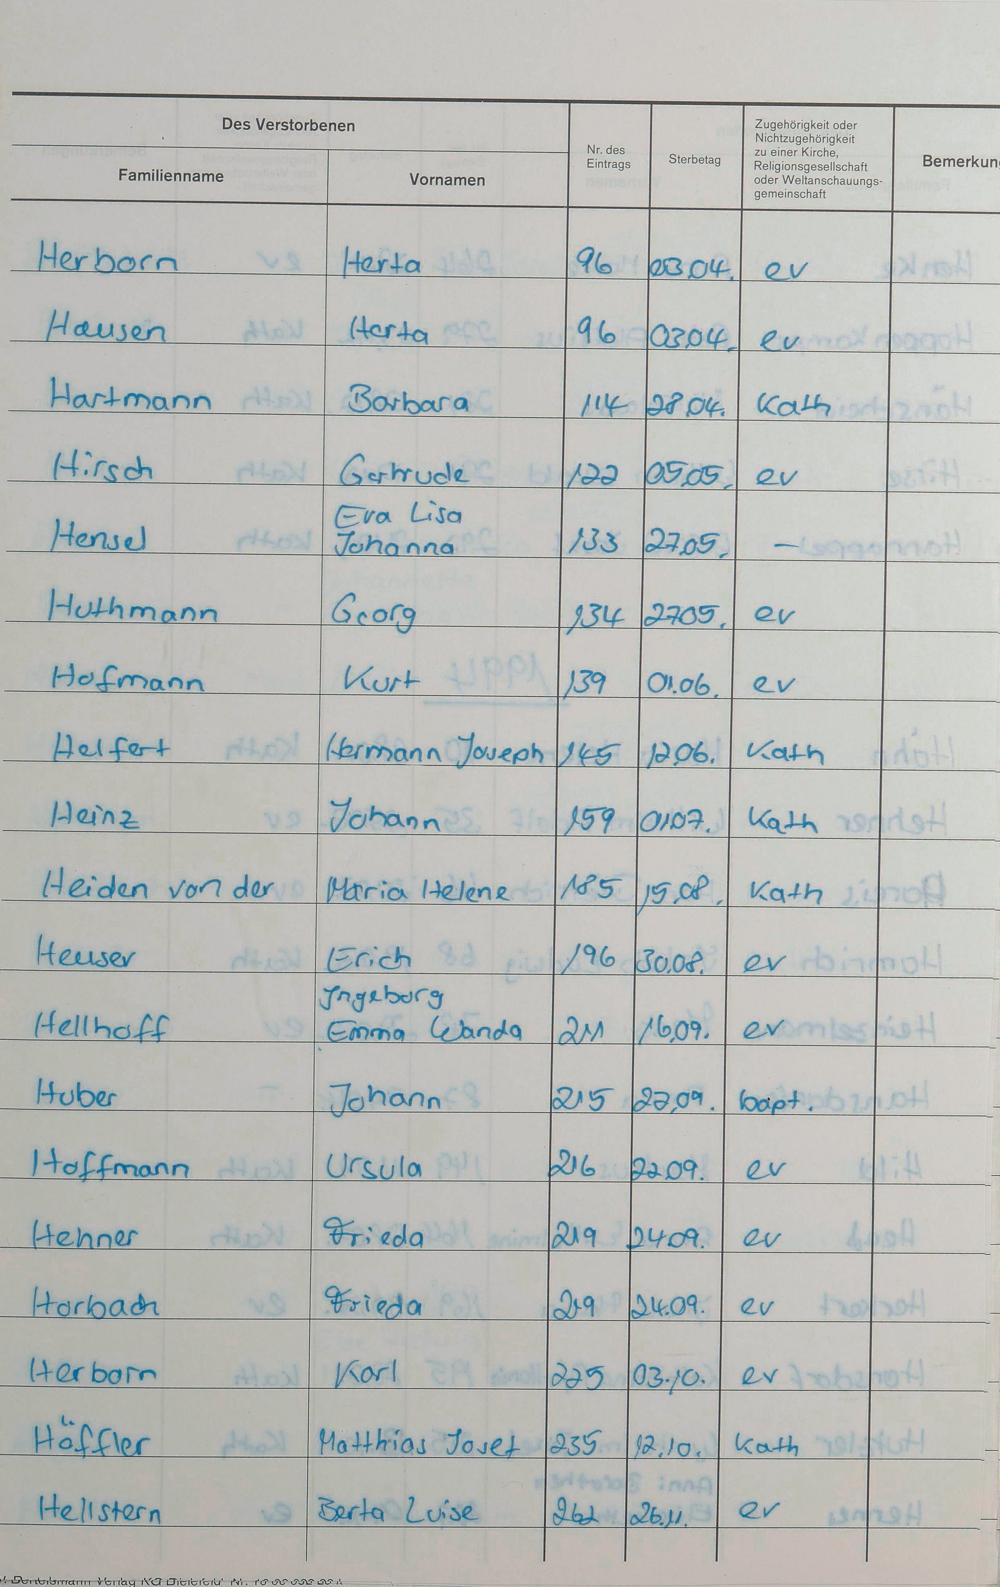 Des Verstorbenen
Familienname Vornamen Nr. des Eintrags Sterbetag Zugehörigkeit oder Nichtzugehörigkeit zu einer Kirche, Religionsgesellschaft oder Weltanschauungs-gemeinschaft Bemerkun
Herborn Herta 96 03.04. ev
Hausen Herta 96 03.04. ev
Hartmann Barbara 114 28.04. Kath
Hirsch Gertrude 122 05.05. ev
Eva Lisa
Hensel Johanna 133 27.05. —
Huthmann Georg 134 27.05. ev
Hofmann Kurt 139 01.06. ev
Helfert Hermann Joseph 145 12.06. Kath
Heinz Johann 159 01.07. Kath
Heiden von der Maria Helene 185 15.08. Kath
Heuser Erich 196 30.08. ev
Ingeborg
Hellhoff Emma Wanda 211 16.09. ev
Huber Johann 215 22.09. bapt.
Hoffmann Ursula 216 22.09. ev
Hehner Frieda 219 24.09. ev
Horbach Frieda 219 24.09. ev
Herborn Karl 225 03.10. ev
Höffler Matthias Josef 235 12.10. Kath
Hellstern Berta Luise 262 26.11. ev